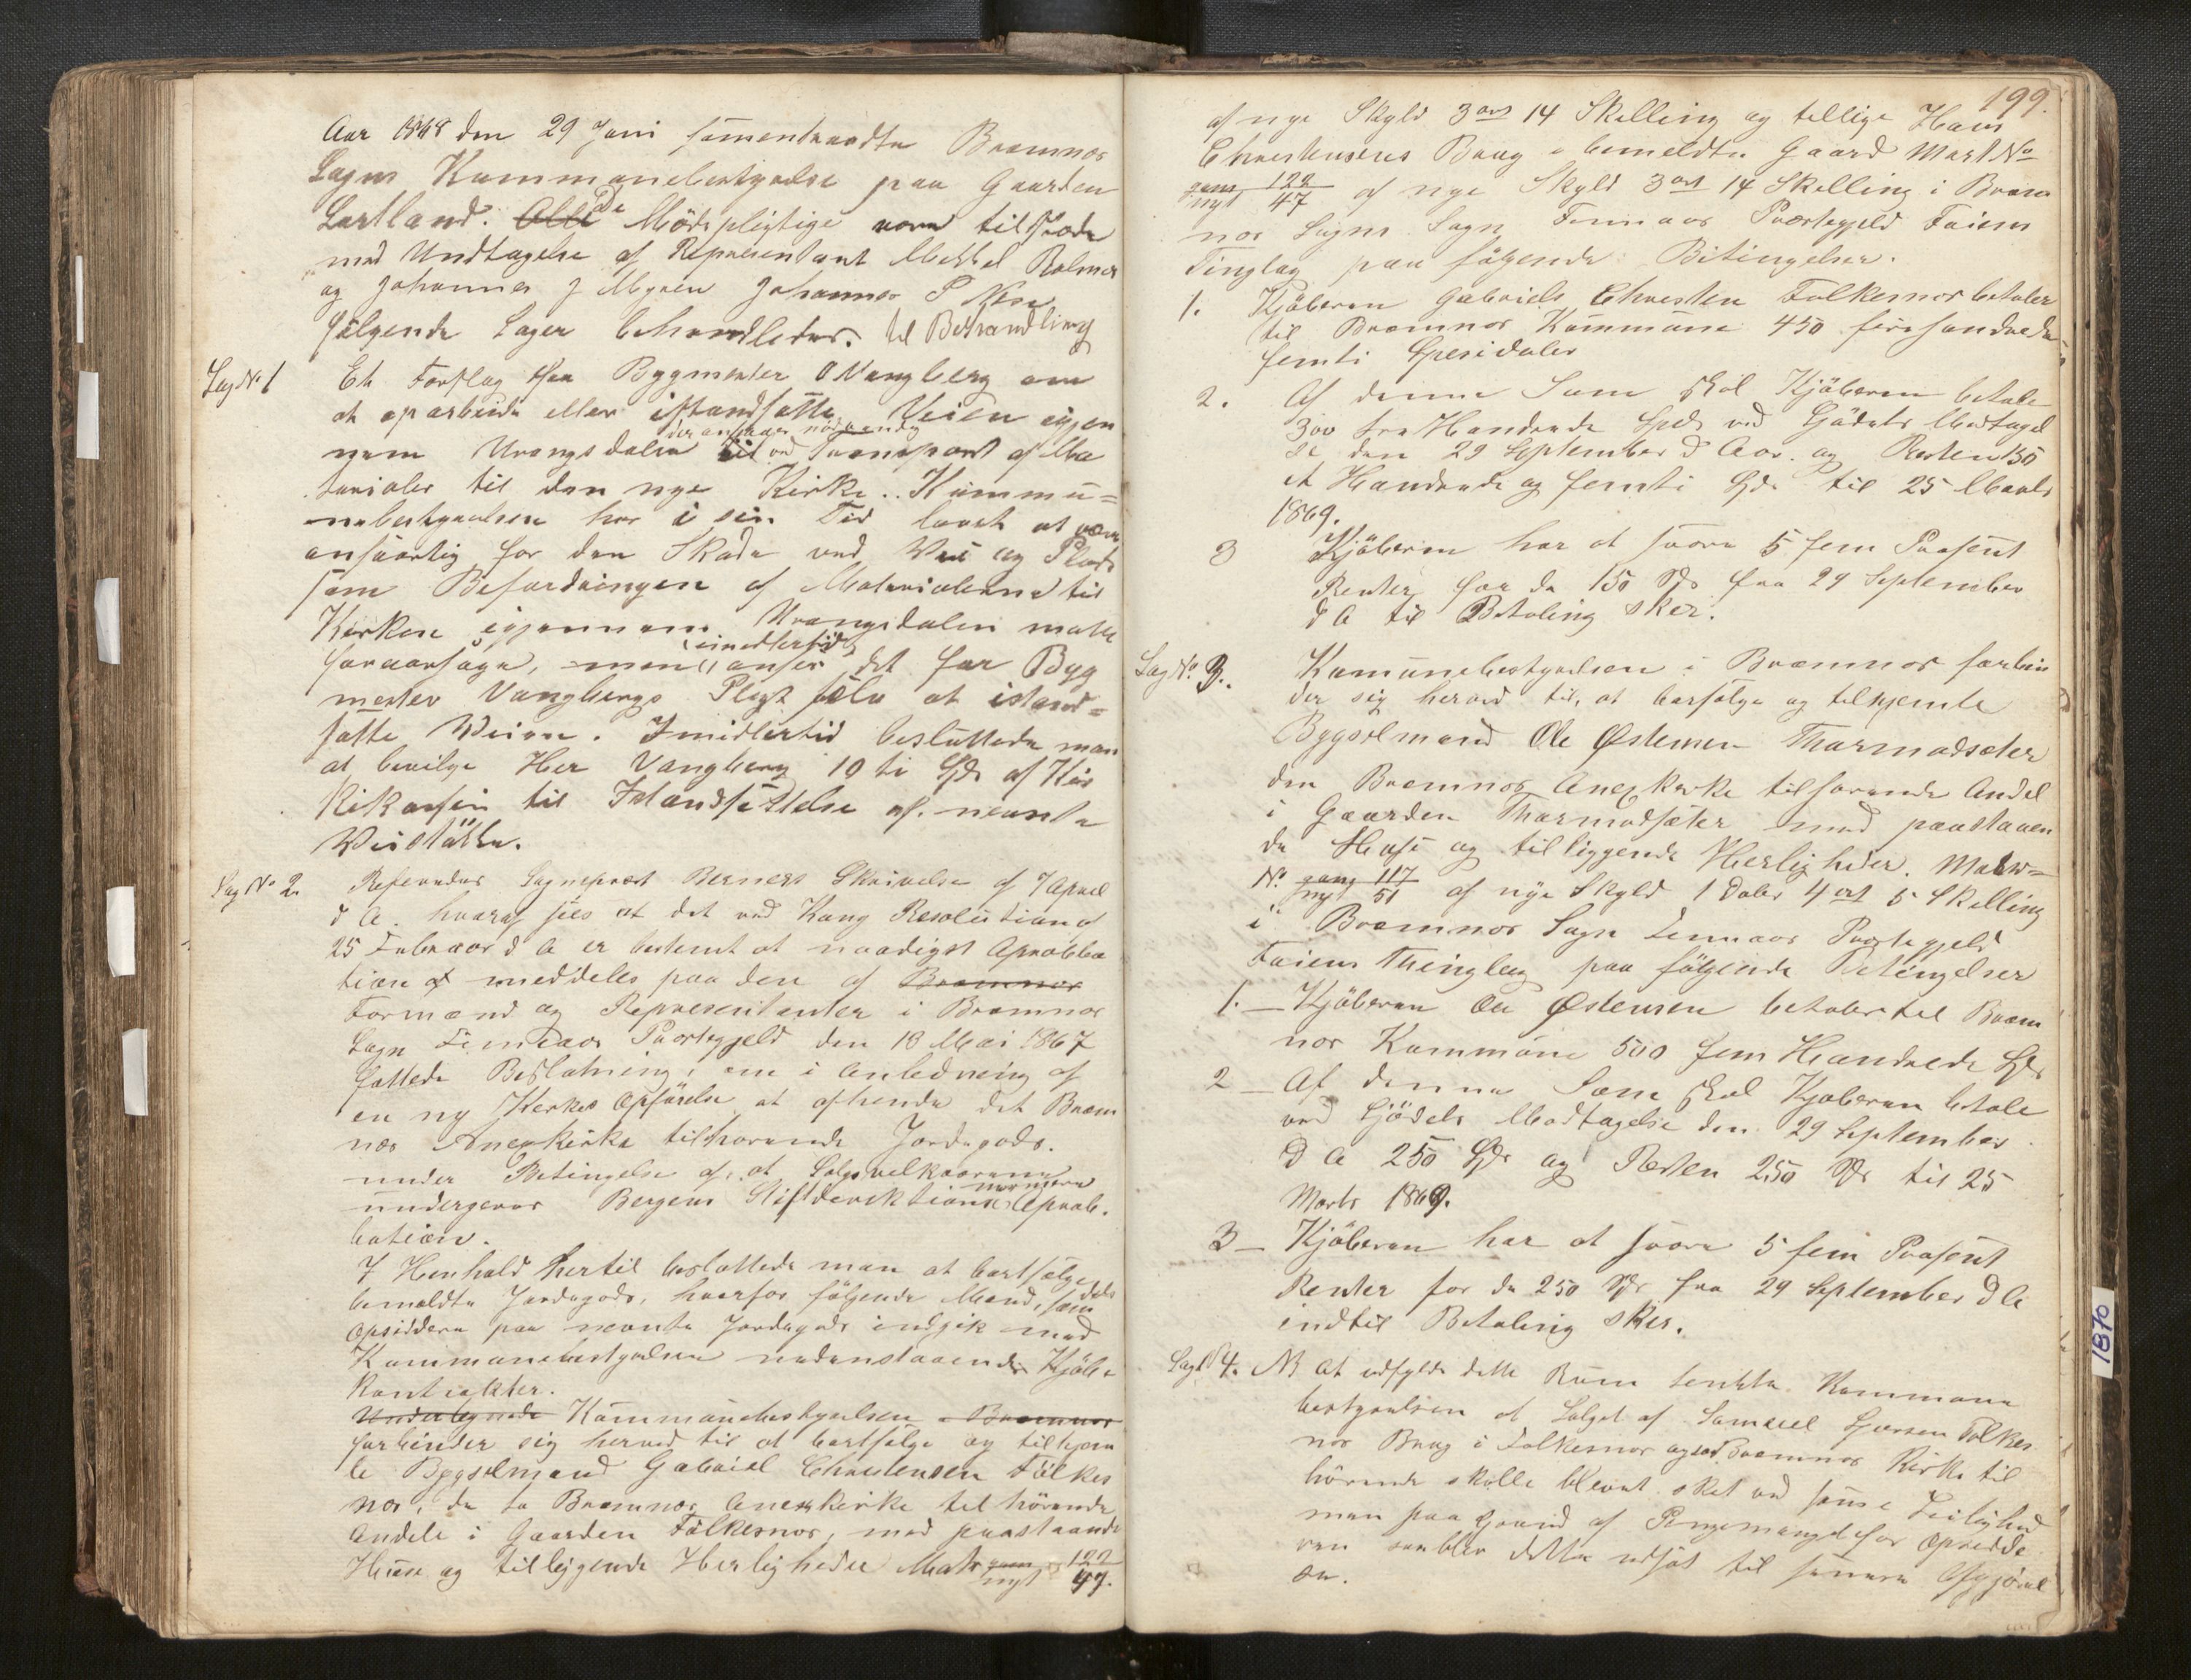 Aar 1868 den 29 Juni sammentraadte Bremnæs
Sogns Kommunebestyrelse paa Gaarden
Lartland. Alle De Mödepligtige vare tilstæde
med Undtagelse af Repræsentant Mikkel Rolsnes
og Johannes J Myren Johannes P Næse
fölgende Sager behandledes. til Behandling
Sag No 1 Et Forslag fra Bygmester O Vangberg om
at oparbeide eller istandsætte Veien igjen
nem Vrangsdalen der ansees nödvendig
til ved Transport af Ma
terialer til den nye Kirke. Kommu=
nebestyrelsen har i sin Tid lovet at være
ansvarlig for den Skade ved Vei og Plads
som Befordringen af Materialerne til
Kirken igjennem Vrangsdalen maatte
foraarsage, men anser imidlertid det for Byg
mester Vangbergs Pligt selv at istand=
sætte Veien. Imidlertid besluttede man
at bevilge Her Vangberg 10 ti Spd af Kir
kekassen til Istandsættelse af nevnte
Veistökke.
Sag No 2. Refereredes Sognepræst Berners Skrivelse af 7 April
d A. hvoraf sees at det ved Kong Resolution af
25 Februar d A er bestemt at naadigst Aprobba
tion af meddeles paa den af Bremnæs
Formænd og Repræsentanter i Bremnæs
Sogn Finnaas Præstegjeld den 18 Mai 1867
fattede Beslutning, om i Anledning af
en ny Kirkes Opförelse at afhende det Brem
næs Anexkirke tilhörende Jordegods.
under Betingelse af, at Salgsvilkaarene
undergives Bergens Stiftdirektions nærmere Aprob.
bation.
I Henhold hertil besluttede man at bortsælge
bemeldte Jordegods, hvorfor fölgende Mænd, som dels
Opsiddere paa nevnte Jordegods indgik med
Kommunebestyrelsen nedenstaaende Kjöbe
Kontrakter.
Undertegnede Kommunebestyrelsen i Bremnæs
forbinder sig herved til at bortsælge og tilhjem
le Bygselmand Gabriel Christensen Folkes
næs, de to Bremnæs Anexkirke tilhörende
Andele i Gaarden Folkesnæs, med paastaaende
Huse og tilliggende Herligheder Matr gam 122
nyt 47.
199.
af nye Skyld 3 ort 14 Skelling og tillige Hans
Christensens Brug i bemeldte Gaard Mart No
gam 122
nyt 47 af nye Skyld 3 ort 14 Skelling i Brem
næs Sogns Sogn Finnaas Præstegjeld Foiens
Tinglag paa fölgende Bitingelser.
1. Kjöberen Gabriels Christen Folkesnæs betaler
til Bremnæs Kommune 450 firehundrede
femti Spesidaler
2. Af denne Sum skal Kjöberen betale
300 tre Hundrede Spd. ved Sjödets Modtagel
se den 29 September d Aar. og Resten 150
et Hundrede og femti Spd. til 25 Marts
1869.
3 Kjöberen har at svare 5 fem Prosent
Renter for de 150 Spd. fra 29 September
d A til Betaling sker.
Sag No. 3. Komunebestyrelsen i Bremnæs forbin
der sig herved til, at borsælge og tilhjemle
Bygselmand Ole Østensen Thormodsæter
den Bremnæs Anexkirke tilhörende Andel
i Gaarden Thormodsæter med paastaaen
de Huse og tilliggende Herligheder. Matr=
No. gam 117
nyt 51 af nye Skyld 1 Daler 4 ort 5 Skelling
i Bremnæs Sogn Finnaas Præstegjeld
Foiens Thinglag paa fölgende Betingelser
1. — Kjöberen Ole Østensen betaler til Brem
næs Kommune 500 fem Hundrede Spd
2 — Af denne Sum skal Kjöberen betale
ved Sjödets Modtagelse den 29 September
d A 250 Spd og Resten 250 Spd til 25
Marts 1869.
3 — Kjöberen har at svare 5 fem Prosent
Renter for de 250 Spd fra 29 September d A
indtil Betaling sker.
Sag No 4. NB At udfylde dette Rum tenkte Kommune
bestyrelsen at Salget af Samuel Sjursen Folkes
næs Brug i Folkesnæs ogsaa Bremnæs Kirke til
hörende skulle blevet sket ved samme Leilighed
men paa Grund af Pengemangel for Opsidde
ren saa blev dette udsat til senere Afgjörel
se.
1870